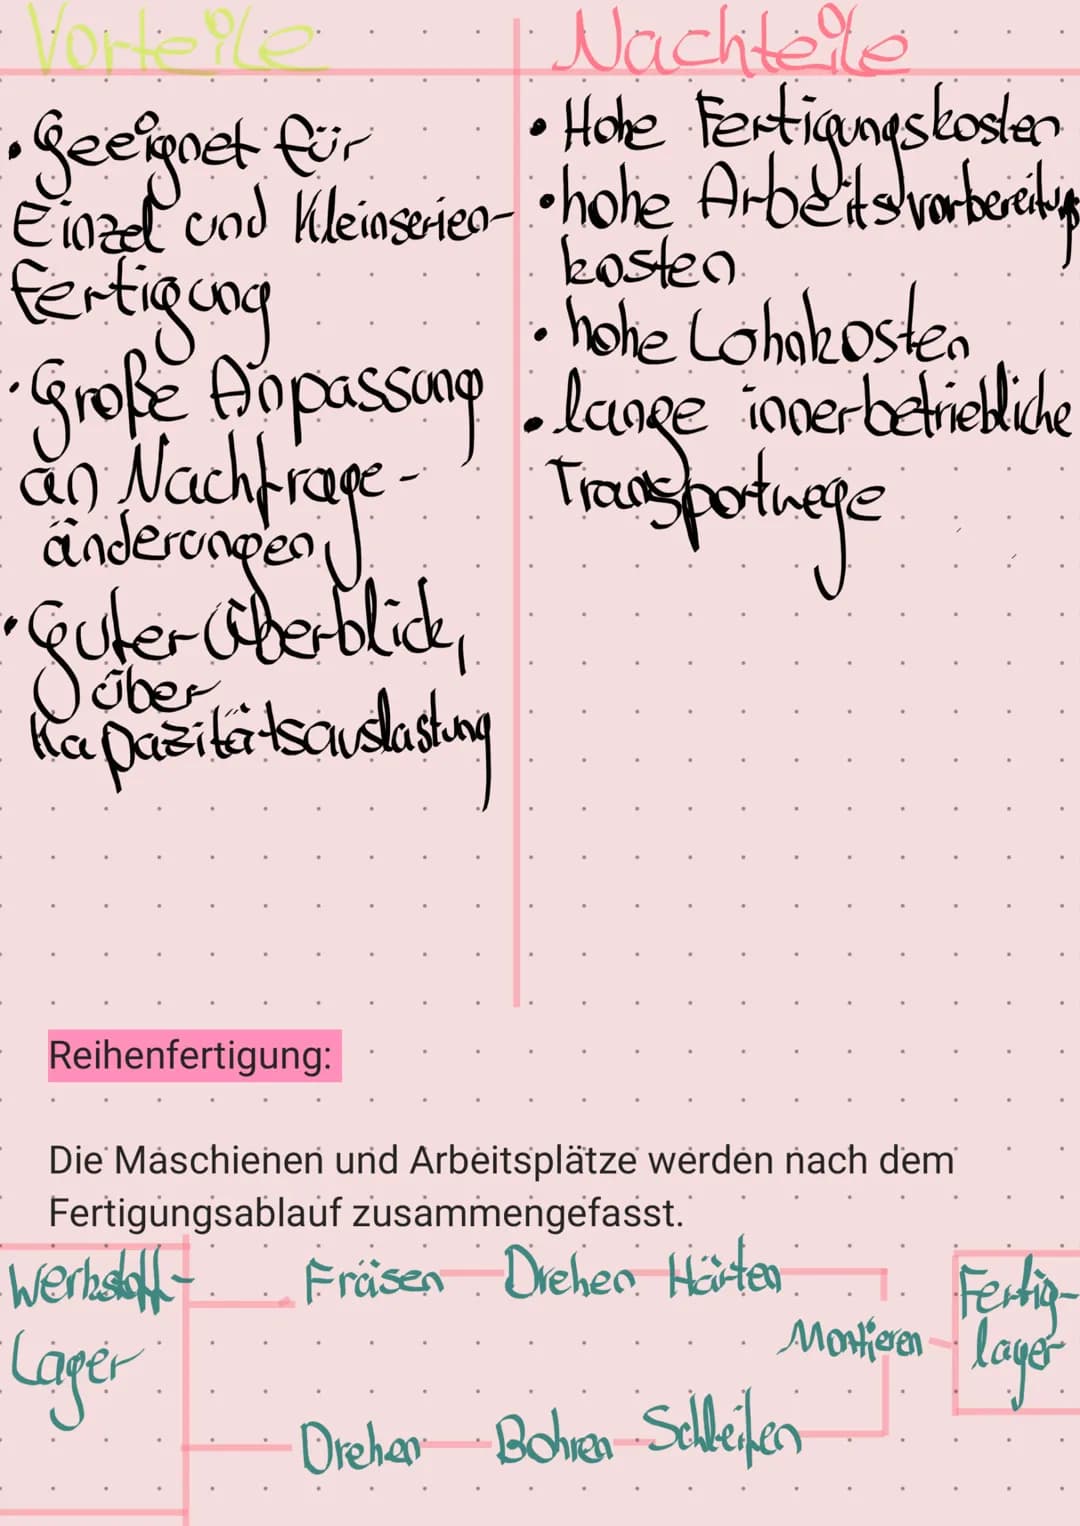 Vorteile
• Geeignet für
Einzel und Kleinserien-
fertigung
• Große Anpassung
an Nachfrage-
änderungen
• Guter Überblick,
über
Kapazitätsauslastung
Nachteile
• Hohe Fertigungskosten
• hohe Arbeitsvorbereitungs
kosten
• hohe Lohnkosten
• lange innerbetriebliche
Transportwege
Reihenfertigung:
Die Maschienen und Arbeitsplätze werden nach dem
Fertigungsablauf zusammengefasst.
Werkstoff-
Lager
Fräsen Drehen Härten
Montieren
Fertig-
lager
Drehen Bohren Schleifen